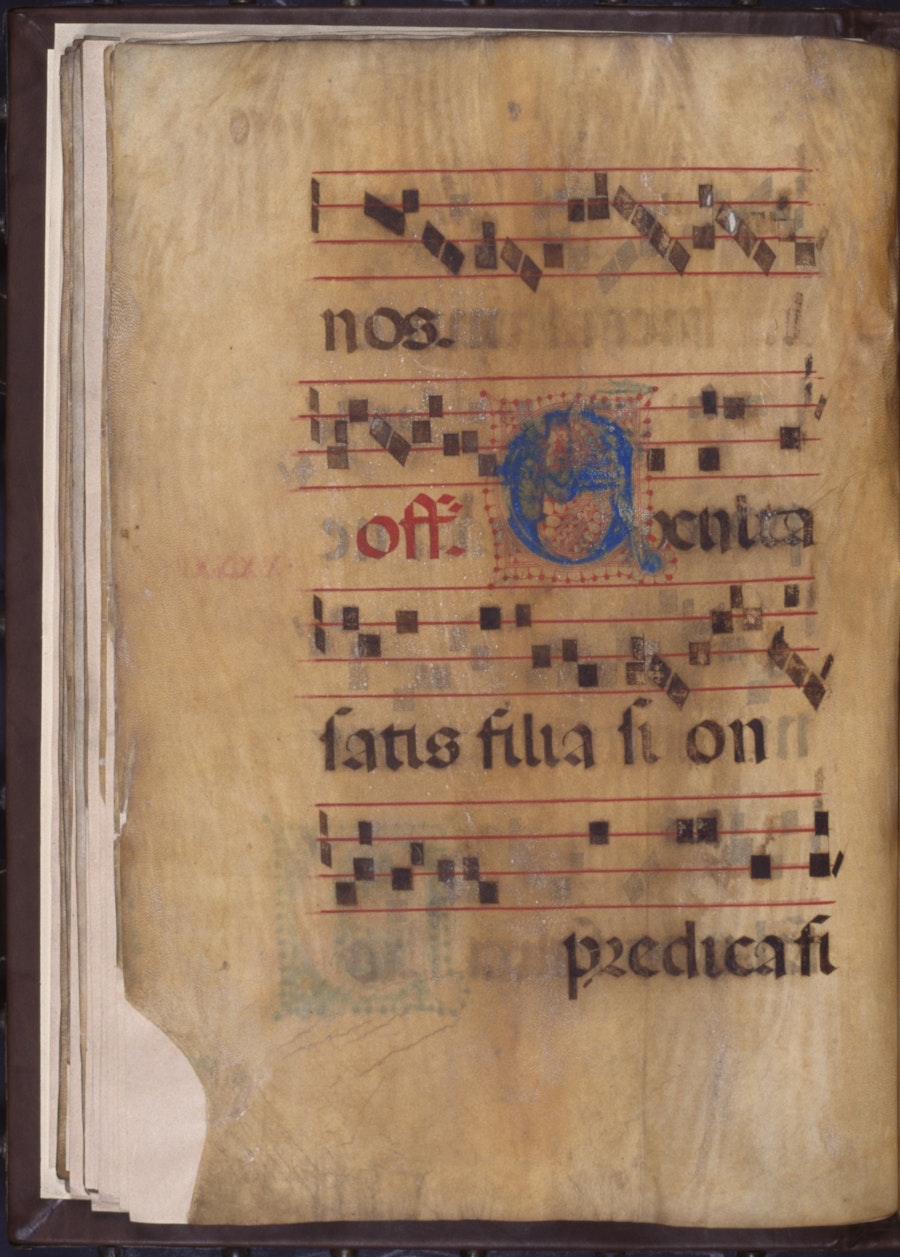 nos.
off. Exulta
satis filia si on
predica fi